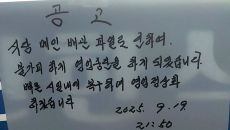 공 고
시장 메인 배관 파열로 인하여,
불가피 하게 영업중단을 하게 되었습니다.
빠른 시일내에 복구하여 영업정상화
하겠습니다
2025. 9. 19.
21:50